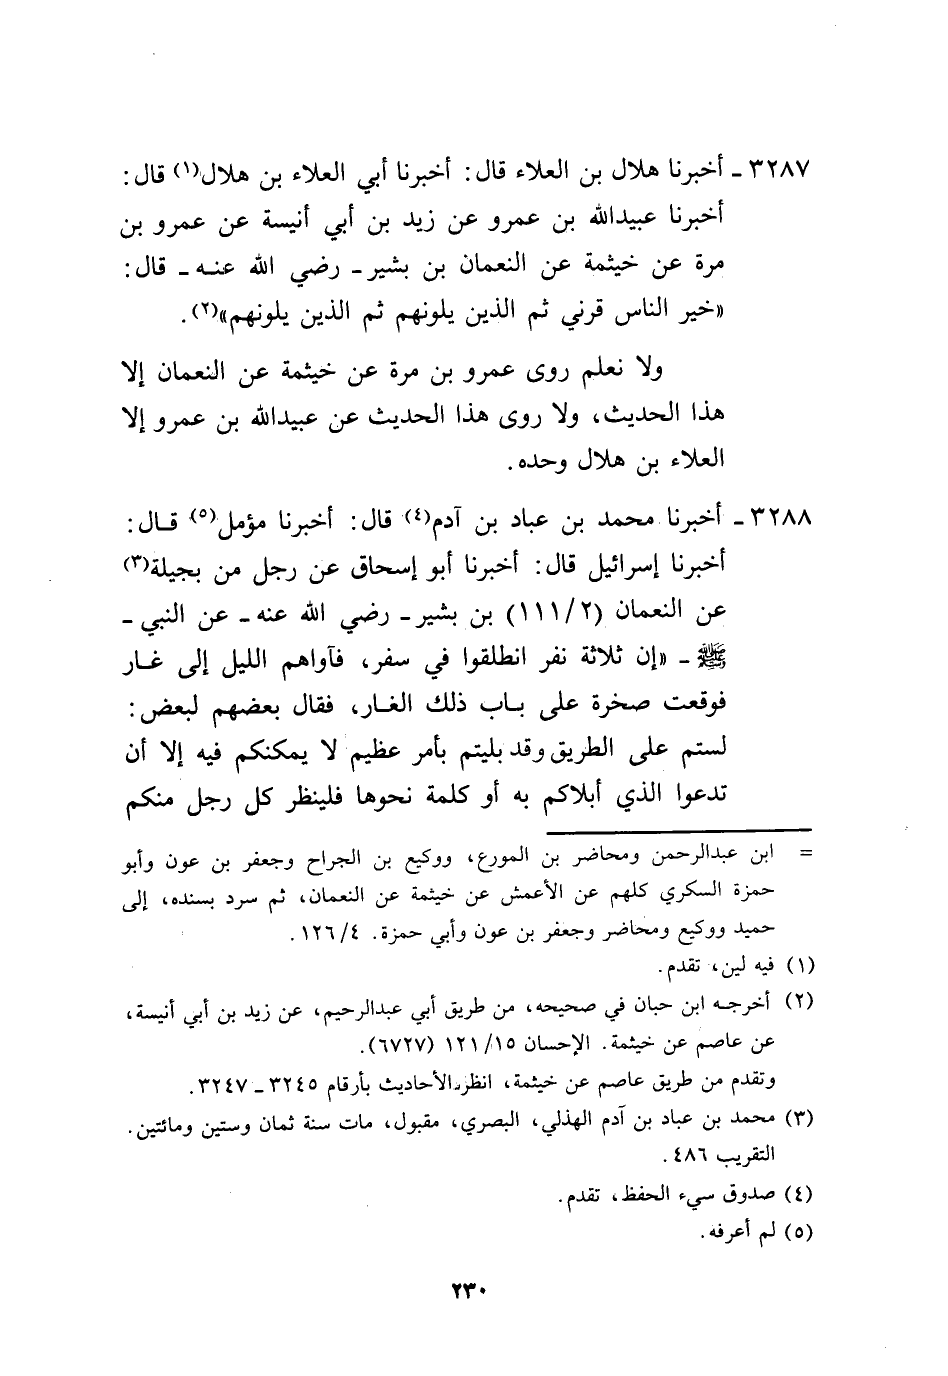 ٣٢٨٧ ـ أخبرنا هلال بن العلاء قال: أخبرنا أبي العلاء بن هلال(١) قال:
أخبرنا عبيدالله بن عمرو عن زيد بن أبي أنيسة عن عمرو بن
مرة عن خيثمة عن النعمان بن بشير ـ رضي الله عنه ـ قال:
«خير الناس قرني ثم الذين يلونهم ثم الذين يلونهم»(٢).
ولا نعلم روى عمرو بن مرة عن خيثمة عن النعمان إلا
هذا الحديث، ولا روى هذا الحديث عن عبيدالله بن عمرو إلا
العلاء بن هلال وحده.
٣٢٨٨ ـ أخبرنا محمد بن عباد بن آدم(٤) قال: أخبرنا مؤمل(٥) قال:
أخبرنا إسرائيل قال: أخبرنا أبو إسحاق عن رجل من بجيلة(٣)
عن النعمان (١١١/٢) بن بشير ـ رضي الله عنه ـ عن النبي ـ
ﷺ ـ «إن ثلاثة نفر انطلقوا في سفر، فآواهم الليل إلى غار
فوقعت صخرة على باب ذلك الغار، فقال بعضهم لبعض:
لستم على الطريق وقد بليتم بأمر عظيم لا يمكنكم فيه إلا أن
تدعوا الذي أبلاكم به أو كلمة نحوها فلينظر كل رجل منكم
= ابن عبدالرحمن ومحاضر بن المورع، ووكيع بن الجراح وجعفر بن عون وأبو
حمزة السكري كلهم عن الأعمش عن خيثمة عن النعمان، ثم سرد بسنده، إلى
حميد ووكيع ومحاضر وجعفر بن عون وأبي حمزة. ١٢٦/٤.
(١) فيه لين، تقدم.
(٢) أخرجه ابن حبان في صحيحه، من طريق أبي عبدالرحيم، عن زيد بن أبي أنيسة،
عن عاصم عن خيثمة. الإحسان ١٢١/١٥ (٦٧٢٧).
وتقدم من طريق عاصم عن خيثمة، انظر الأحاديث بأرقام ٣٢٤٥ ـ ٣٢٤٧.
(٣) محمد بن عباد بن آدم الهذلي، البصري، مقبول، مات سنة ثمان وستين ومائتين.
التقريب ٤٨٦.
(٤) صدوق سيء الحفظ، تقدم.
(٥) لم أعرفه.
٢٣٠